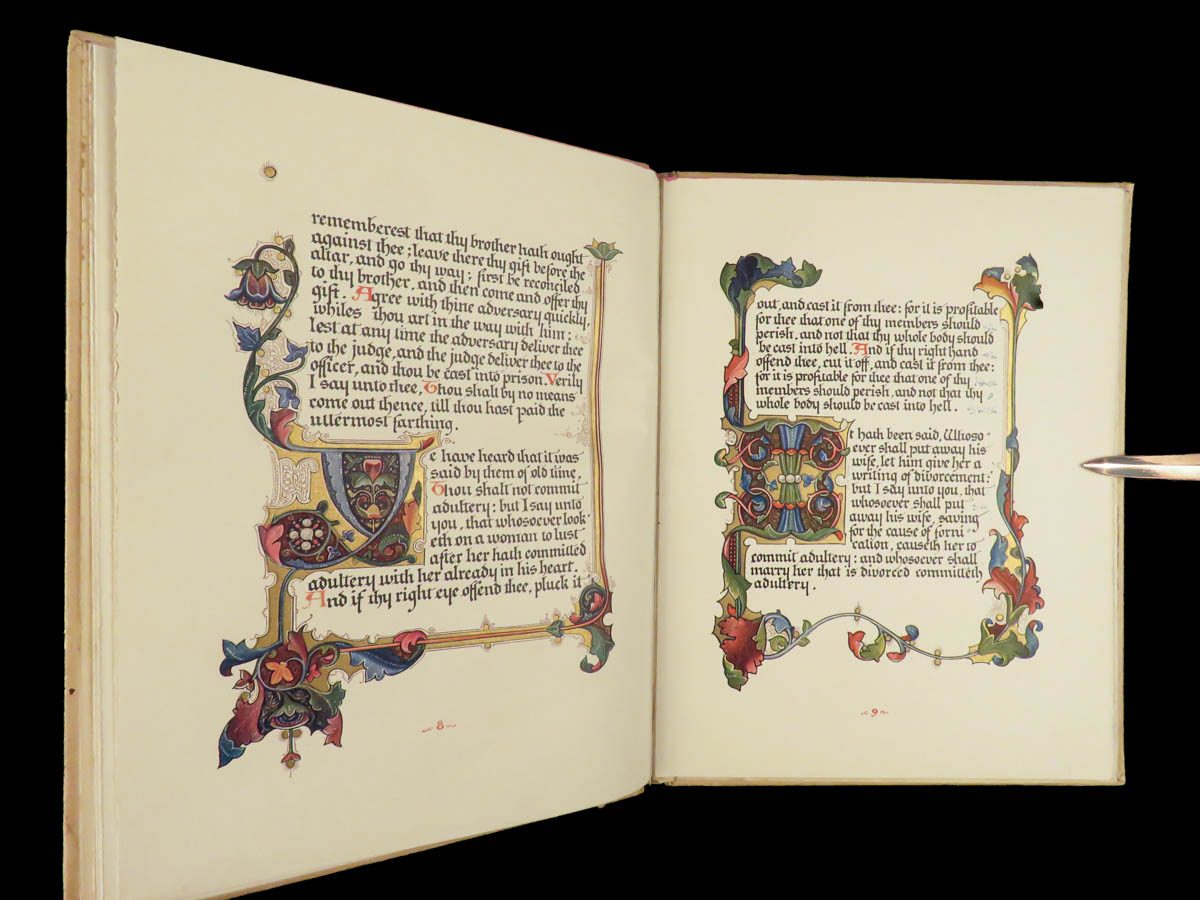 rememberest that thy brother hath ought
against thee; leave there thy gift before the
altar, and go thy way; first be reconciled
to thy brother, and then come and offer thy
gift. Agree with thine adversary quickly,
whiles thou art in the way with him;
lest at any time the adversary deliver thee
to the judge, and the judge deliver thee to the
officer, and thou be cast into prison. Verily
I say unto thee, Thou shalt by no means
come out thence, till thou hast paid the
uttermost farthing.
Ye have heard that it was
said by them of old time,
Thou shalt not commit
adultery: but I say unto
you, that whosoever look-
eth on a woman to lust
after her hath committed
adultery with her already in his heart.
And if thy right eye offend thee, pluck it
8
out, and cast it from thee: for it is profitable
for thee that one of thy members should
perish, and not that thy whole body should
be cast into hell. And if thy right hand
offend thee, cut it off, and cast it from thee:
for it is profitable for thee that one of thy
members should perish, and not that thy
whole body should be cast into hell.
It hath been said, Whoso-
ever shall put away his
wife, let him give her a
writing of divorcement:
but I say unto you, that
whosoever shall put
away his wife, saving
for the cause of forni-
cation, causeth her to
commit adultery: and whosoever shall
marry her that is divorced committeth
adultery.
9